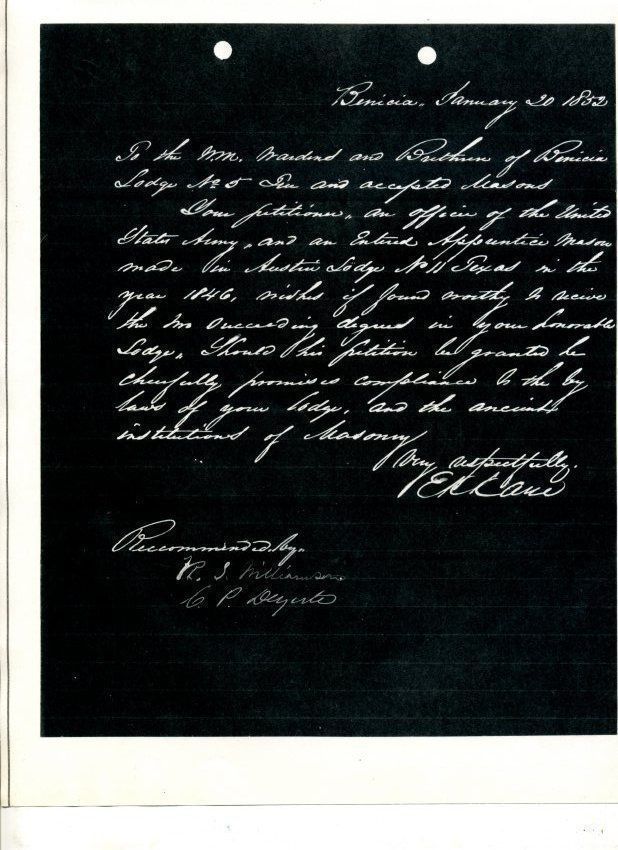 Benicia, January 20 1852
To the WM. Wardens and Brethren of Benicia
Lodge No 5 Free and accepted Masons
Your petitioner, an officer of the United
States Army, and an Entered Apprentice Mason
made in Austin Lodge No 11 Texas in the
year 1846, wishes if found worthy to receive
the two succeeding degrees in your honorable
Lodge, Should his petition be granted he
cheerfully promises compliance to the by
laws of your Lodge, and the ancient
institutions of Masonry
Very respectfully,
E K Kane
Reccommended by,
R. S. Williamson
C. P.